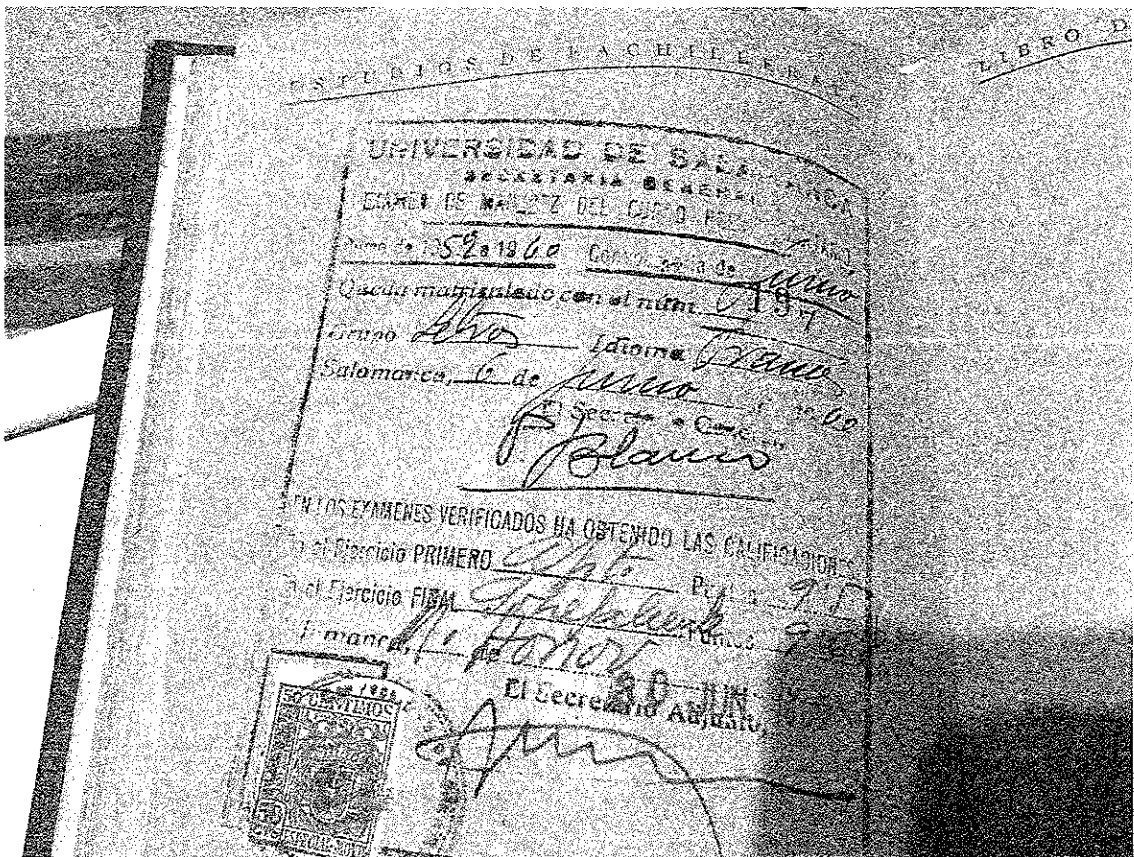 ESTUDIOS DE BACHILLERA
LIBRO D
UNIVERSIDAD DE SALAMANCA
SECRETARIA GENERAL
EXAMEN DE MADUREZ DEL CURSO
Curso de 1959 a 1960 Convocatoria de Junio
Queda matriculado con el núm. 197
Grupo Letras Idioma
Salamanca, 6 de junio de 60
El Secretario General,
P. Blanco
EN LOS EXAMENES VERIFICADOS HA OBTENIDO LAS CALIFICACIONES
el Ejercicio PRIMERO Apto
el Ejercicio FINAL Sobresaliente Puntos
M. Honor
30 JUN
El Secretario Adjunto,
50 CENTIMOS